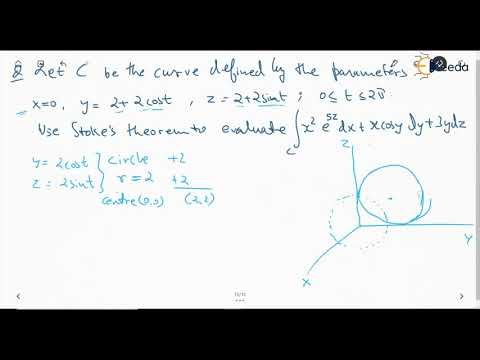 Q Let C be the curve defined by the parameters
x=0, y = 2+2cost, z = 2+2sint; 0≤t≤2π
Use Stoke's theorem to evaluate ∫_C x² e^{5z} dx + x cosy dy + 3y dz
y = 2cost } circle +2
z = 2sint } r = 2 +2
centre (0,0) (2,2)
Z
Y
X